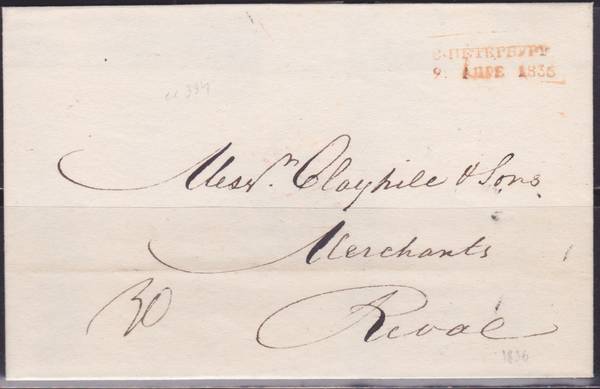 С·ПЕТЕРБУРГ
9. АПРЕ 1836
cc 394
Mess.rs Clayhills & Sons
Merchants
Reval
30
1836